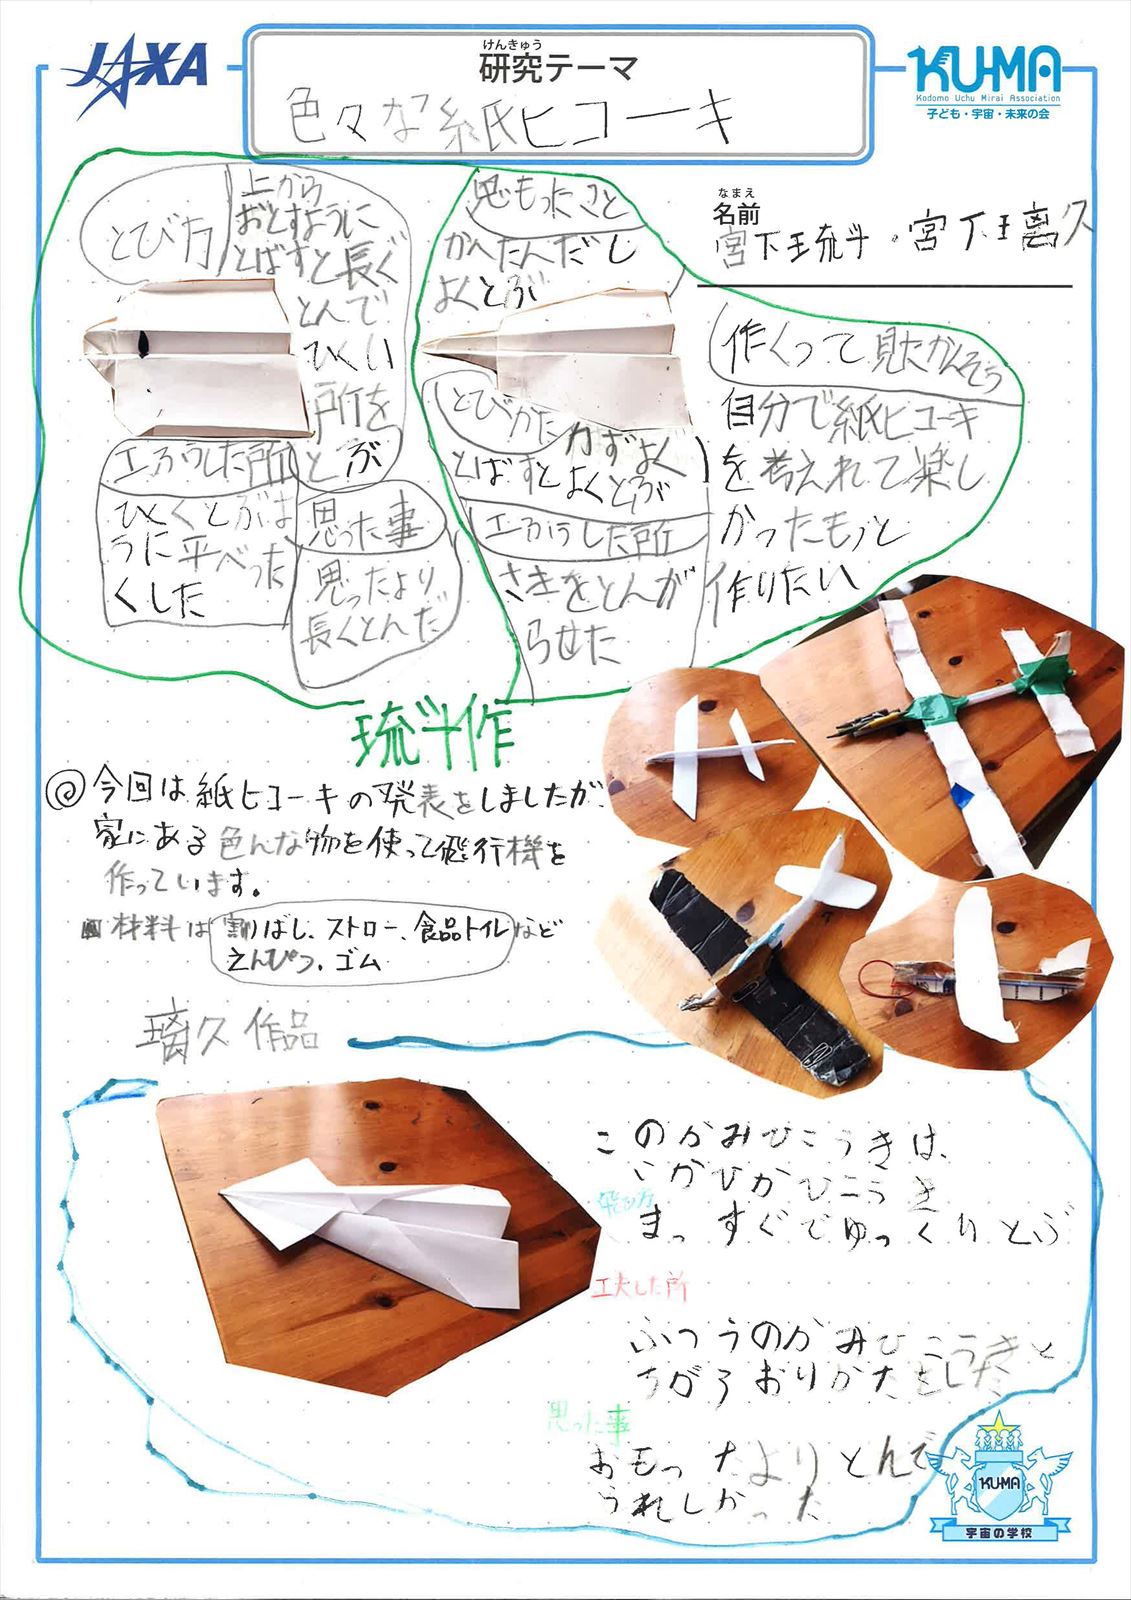 JAXA
けんきゅう
研究テーマ
色々な紙ヒコーキ
KU-MA
Kodomo Uchu Mirai Association
子ども・宇宙・未来の会
なまえ
名前
宮下琉斗・宮下璃久
とび方
上から
おとすように
とばすと長く
とんで
ひくい
所を
とぶ
工ふうした所
ひくくとぶは
うに平べった
くした
思った事
思ったより
長くとんだ
思もったこと
かんたんだし
よくとぶ
とびかた
力ずよく
とばすとよくとぶ
工ふうした所
さきをとんが
らせた
作くって見たかんそう
自分で紙ヒコーキ
を考えれて楽し
かったもっと
作りたい
琉斗作
今回は紙ヒコーキの発表をしましたが、
家にある色んな物を使って飛行機を
作っています。
材料は割りばし、ストロー、食品トイレなど
えんぴつ、ゴム
璃久作品
このかみひこうきは、
いかひかひこうき
飛び方
まっすぐでゆっくりとぶ
工夫した所
ふつうのかみひこうきと
ちがうおりかたをした
思った事
おもったよりとんで
うれしかった
KU-MA
宇宙の学校